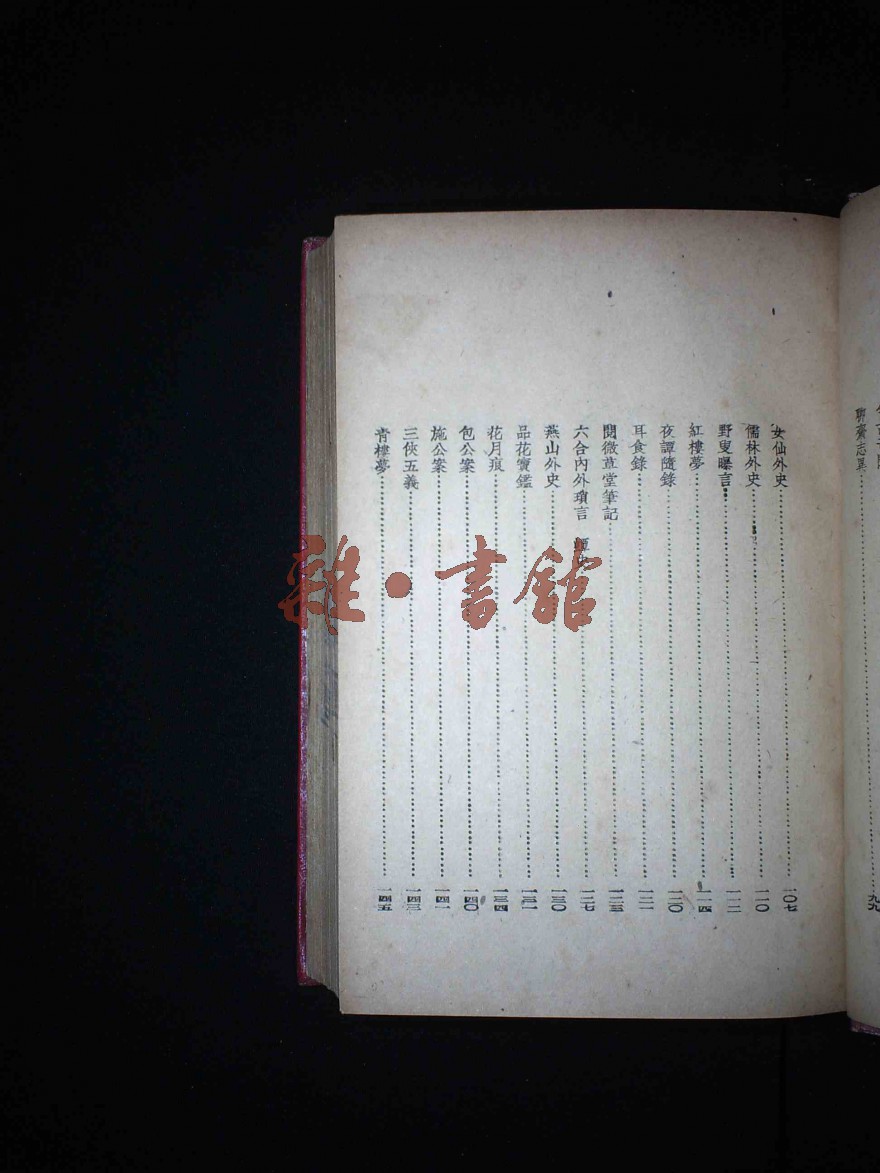 聊齋志異……九九
女仙外史……一〇七
儒林外史……一一〇
野叟曝言……一一二
紅樓夢……一一四
夜譚隨錄……一二〇
耳食錄……
閱微草堂筆記……一二三
六合內外瑣言……一二七
燕山外史……一三〇
品花寶鑑……
花月痕……一三四
包公案……一四〇
施公案……一四一
三俠五義……一四三
青樓夢……一四五
雜·書館